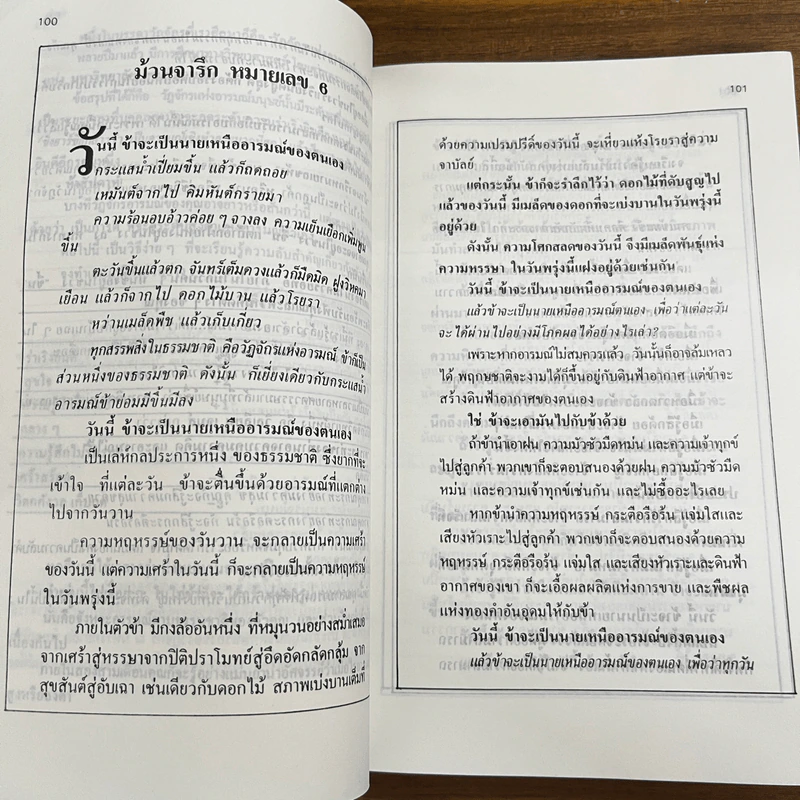 100
ม้วนจารึก หมายเลข 6
วันนี้ ข้าจะเป็นนายเหนืออารมณ์ของตนเอง
กระแสน้ำเปี่ยมขึ้น แล้วก็ถดถอย
เหมันต์จากไป คิมหันต์กรายมา
ความร้อนอบอ้าวค่อย ๆ จางลง ความเย็นเยือกเพิ่มพูน
ขึ้น
ตะวันขึ้นแล้วตก จันทร์เต็มดวงแล้วก็มืดมิด ฝูงวิหคมา
เยือน แล้วก็จากไป ดอกไม้บาน แล้วโรยรา
หว่านเมล็ดพืช แล้วเก็บเกี่ยว
ทุกสรรพสิ่งในธรรมชาติ คือวัฏจักรแห่งอารมณ์ ข้าก็เป็น
ส่วนหนึ่งของธรรมชาติ ดังนั้น ก็เยี่ยงเดียวกับกระแสน้ำ
อารมณ์ข้าย่อมมีขึ้นมีลง
วันนี้ ข้าจะเป็นนายเหนืออารมณ์ของตนเอง
เป็นเล่ห์กลประการหนึ่ง ของธรรมชาติ ซึ่งยากที่จะ
เข้าใจ ที่แต่ละวัน ข้าจะตื่นขึ้นด้วยอารมณ์ที่แตกต่าง
ไปจากวันวาน
ความหฤหรรษ์ของวันวาน จะกลายเป็นความเศร้า
ของวันนี้ แต่ความเศร้าในวันนี้ ก็จะกลายเป็นความหฤหรรษ์
ในวันพรุ่งนี้
ภายในตัวข้า มีกงล้ออันหนึ่ง ที่หมุนวนอย่างสม่ำเสมอ
จากเศร้าสู่หรรษาจากปิติปราโมทย์สู่อึดอัดกลัดกลุ้ม จาก
สุขสันต์สู่อับเฉา เช่นเดียวกับดอกไม้ สภาพเบ่งบานเต็มที่
101
ด้วยความเปรมปรีดิ์ของวันนี้ จะเหี่ยวแห้งโรยราสู่ความ
จาบัลย์
แต่กระนั้น ข้าก็จะรำลึกไว้ว่า ดอกไม้ที่ดับสูญไป
แล้วของวันนี้ มีเมล็ดของดอกที่จะเบ่งบานในวันพรุ่งนี้
อยู่ด้วย
ดังนั้น ความโศกสลดของวันนี้ จึงมีเมล็ดพันธุ์แห่ง
ความหรรษา ในวันพรุ่งนี้แฝงอยู่ด้วยเช่นกัน
วันนี้ ข้าจะเป็นนายเหนืออารมณ์ของตนเอง
แล้วข้าจะเป็นนายเหนืออารมณ์ตนเอง เพื่อว่าแต่ละวัน
จะได้ผ่านไปอย่างมีโภคผลได้อย่างไรเล่า?
เพราะหากอารมณ์ไม่สมควรแล้ว วันนั้นก็อาจล้มเหลว
ได้ พฤกษชาติจะงามได้ก็ขึ้นอยู่กับดินฟ้าอากาศ แต่ข้าจะ
สร้างดินฟ้าอากาศของตนเอง
ใช่ ข้าจะเอามันไปกับข้าด้วย
ถ้าข้านำเอาฝน ความมัวซัวมืดหม่น และความเจ้าทุกข์
ไปสู่ลูกค้า พวกเขาก็จะตอบสนองด้วยฝน ความมัวซัวมืด
หม่น และความเจ้าทุกข์เช่นกัน และไม่ซื้ออะไรเลย
หากข้านำความหฤหรรษ์ กระตือรือร้น แจ่มใสและ
เสียงหัวเราะไปสู่ลูกค้า พวกเขาก็จะตอบสนองด้วยความ
หฤหรรษ์ กระตือรือร้น แจ่มใส และเสียงหัวเราะและดินฟ้า
อากาศของเขา ก็จะเอื้อผลผลิตแห่งการขาย และพืชผล
แห่งทองคำอันอุดมให้กับข้า
วันนี้ ข้าจะเป็นนายเหนืออารมณ์ของตนเอง
แล้วข้าจะเป็นนายเหนืออารมณ์ของตนเอง เพื่อว่าทุกวัน